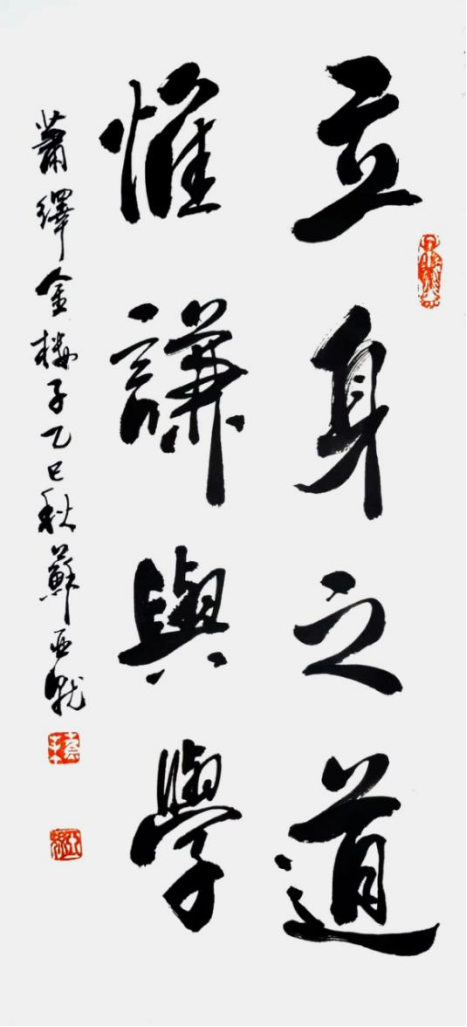 立身之道
惟謙與學
蕭繹金樓子乙巳秋蘇亚